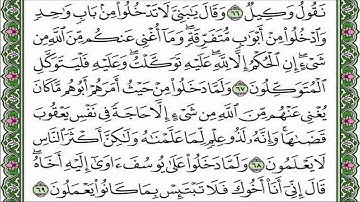 نَقُولُ وَكِيلٌ ٦٦ وَقَالَ يَٰبَنِىَّ لَا تَدْخُلُوا۟ مِنۢ بَابٍ وَٰحِدٍ
وَٱدْخُلُوا۟ مِنْ أَبْوَٰبٍ مُّتَفَرِّقَةٍ وَمَآ أُغْنِى عَنكُم مِّنَ ٱللَّهِ مِن
شَىْءٍ إِنِ ٱلْحُكْمُ إِلَّا لِلَّهِ عَلَيْهِ تَوَكَّلْتُ وَعَلَيْهِ فَلْيَتَوَكَّلِ
ٱلْمُتَوَكِّلُونَ ٦٧ وَلَمَّا دَخَلُوا۟ مِنْ حَيْثُ أَمَرَهُمْ أَبُوهُم مَّا كَانَ
يُغْنِى عَنْهُم مِّنَ ٱللَّهِ مِن شَىْءٍ إِلَّا حَاجَةً فِى نَفْسِ يَعْقُوبَ
قَضَىٰهَا وَإِنَّهُۥ لَذُو عِلْمٍ لِّمَا عَلَّمْنَٰهُ وَلَٰكِنَّ أَكْثَرَ ٱلنَّاسِ
لَا يَعْلَمُونَ ٦٨ وَلَمَّا دَخَلُوا۟ عَلَىٰ يُوسُفَ ءَاوَىٰٓ إِلَيْهِ أَخَاهُ
قَالَ إِنِّىٓ أَنَا۠ أَخُوكَ فَلَا تَبْتَئِسْ بِمَا كَانُوا۟ يَعْمَلُونَ ٦٩